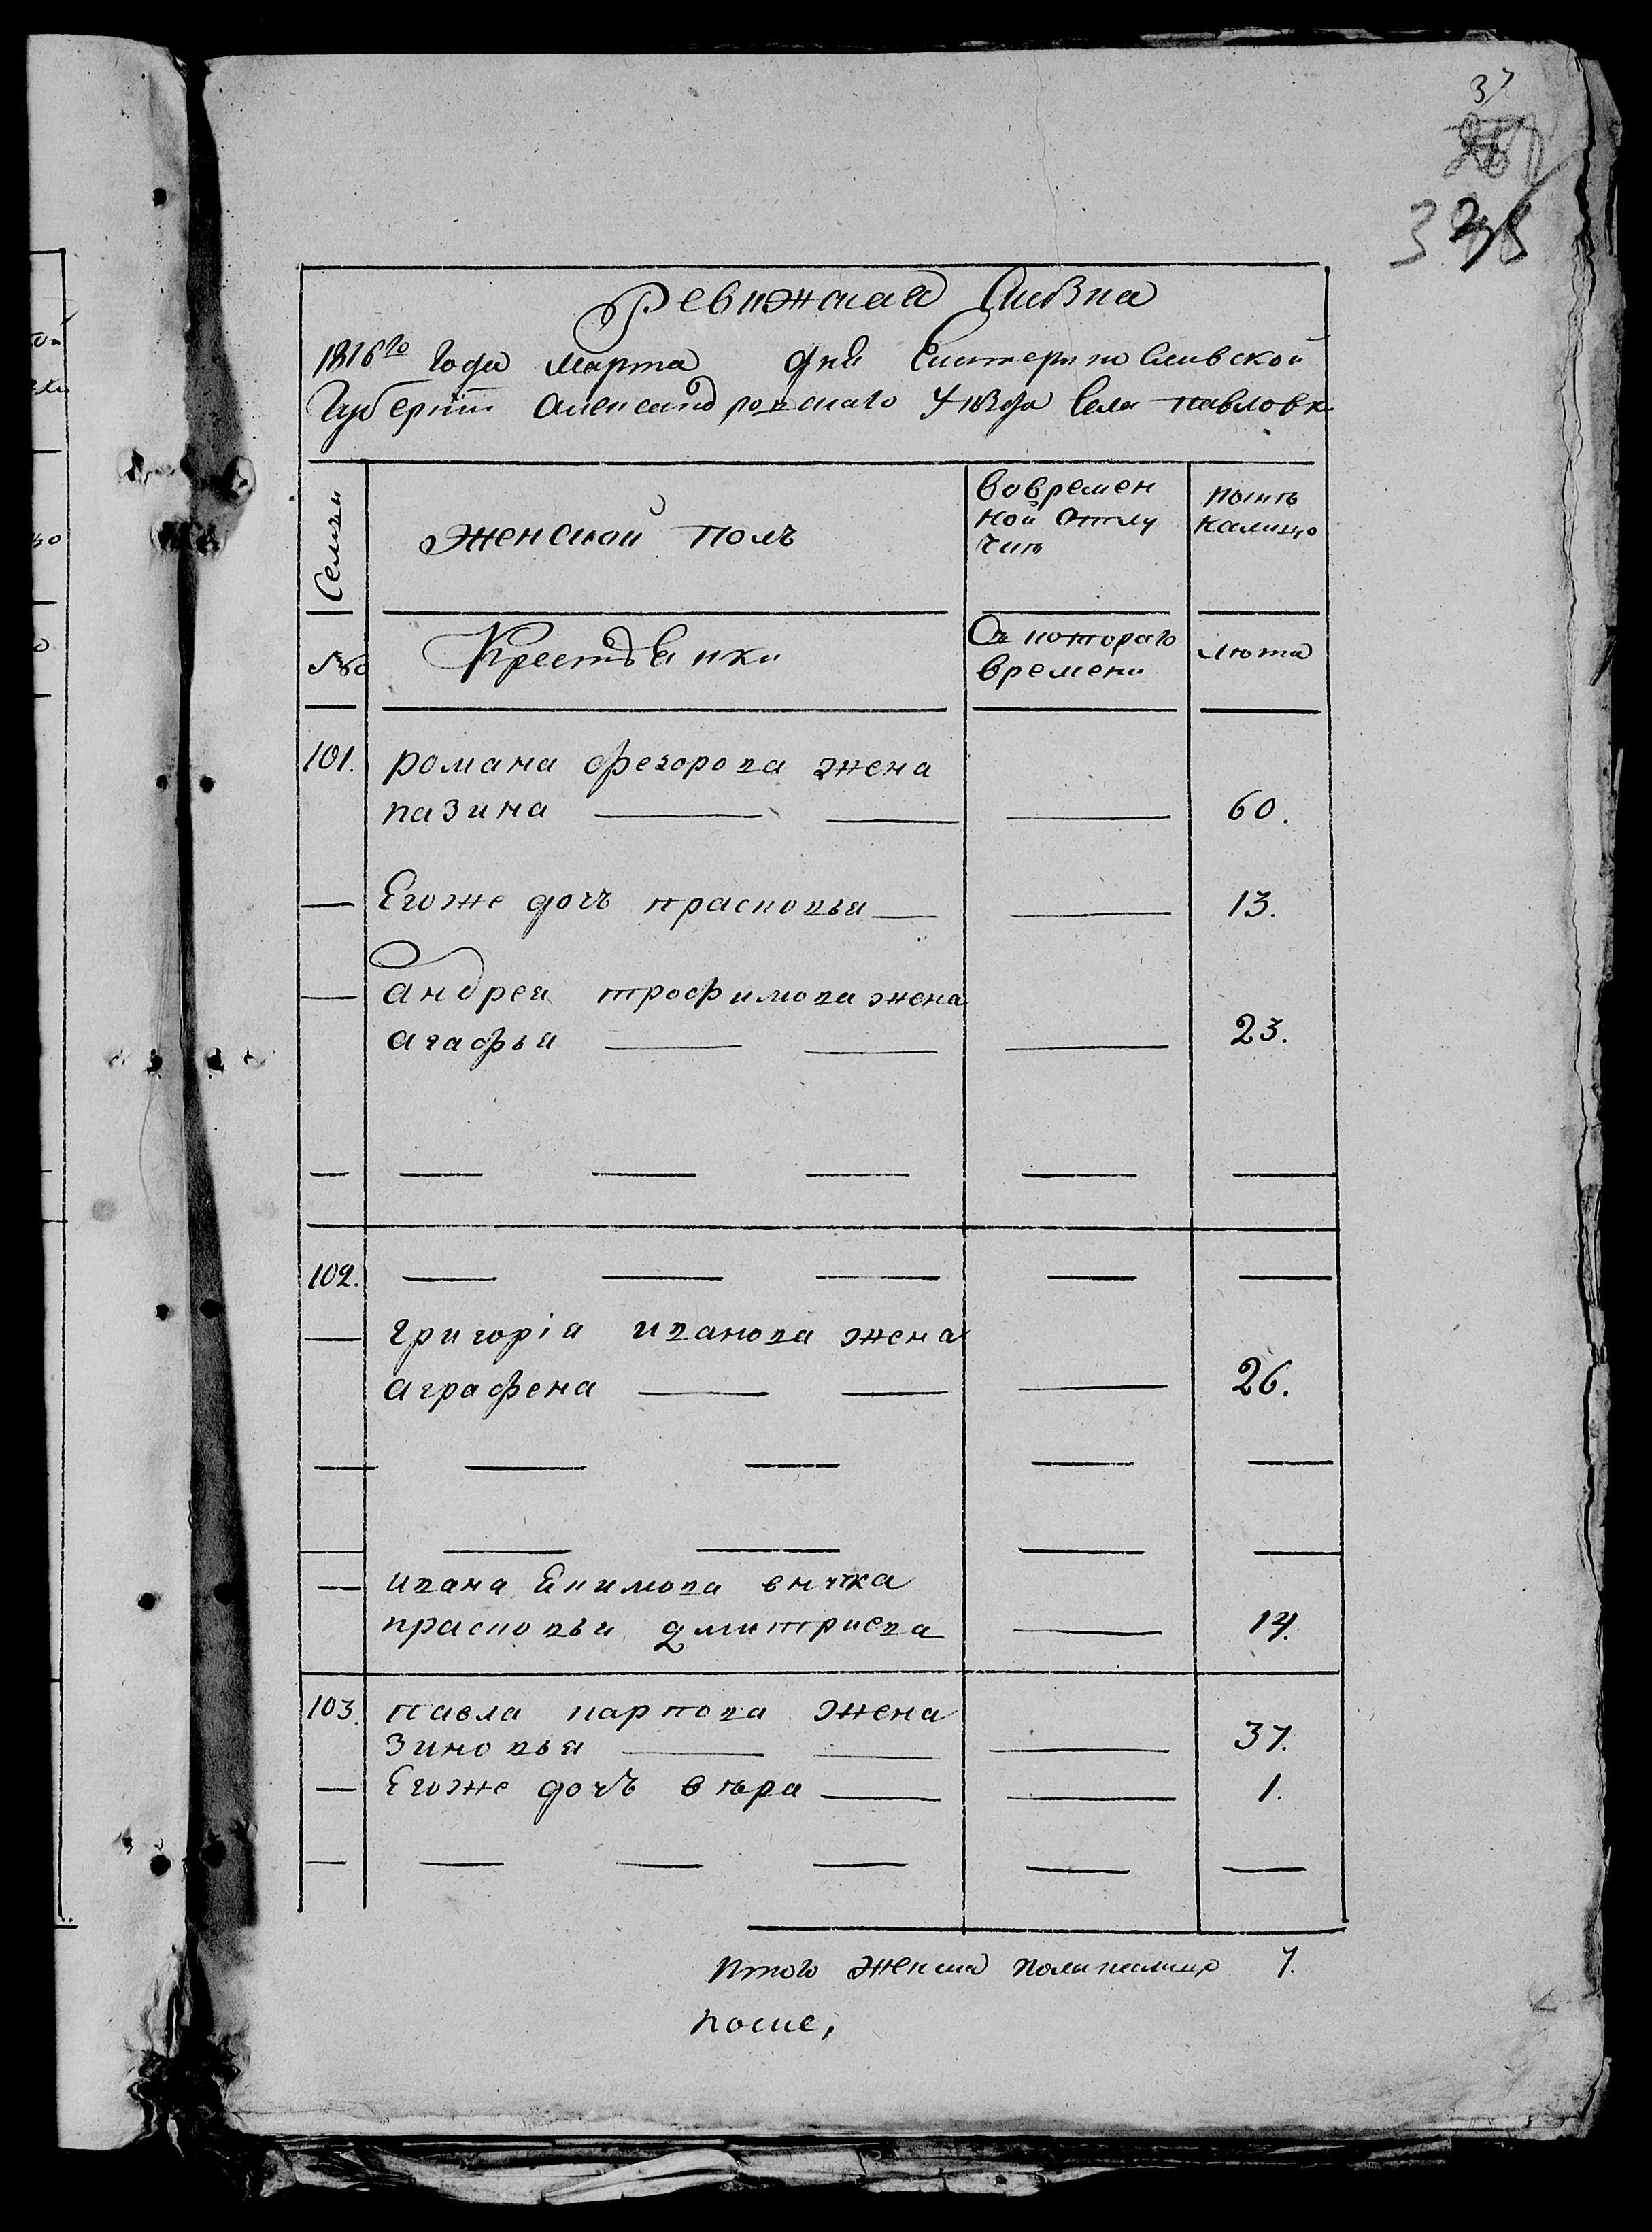 37
338
Ревижская Скѣзка
1816го Года марта дня Екатеринославской
Губерніи Александровскаго Уѣзда Села павловк
Семьи
женской полъ
вовремен
ной отлу
чкѣ
нынѣ
налицо
№
Крестьянки
Съ котораго
времени
лѣта
101. романа федорова жена
вазина — — — 60.
— Егоже дочь прасковья — — 13.
— андрея трофимова жена
агафья — — — 23.
— — — — — —
102. — — — — —
— григоріа иванова жена
аграфена — — — 26.
— — — — —
— — — — —
— ивана Екимова внучка
прасковья дмитриева — 14.
103. павла карпова жена
зиновья — — — 37.
— Егоже дочь вѣра — — 1.
— — — — — —
итого женска пола налицо 7.